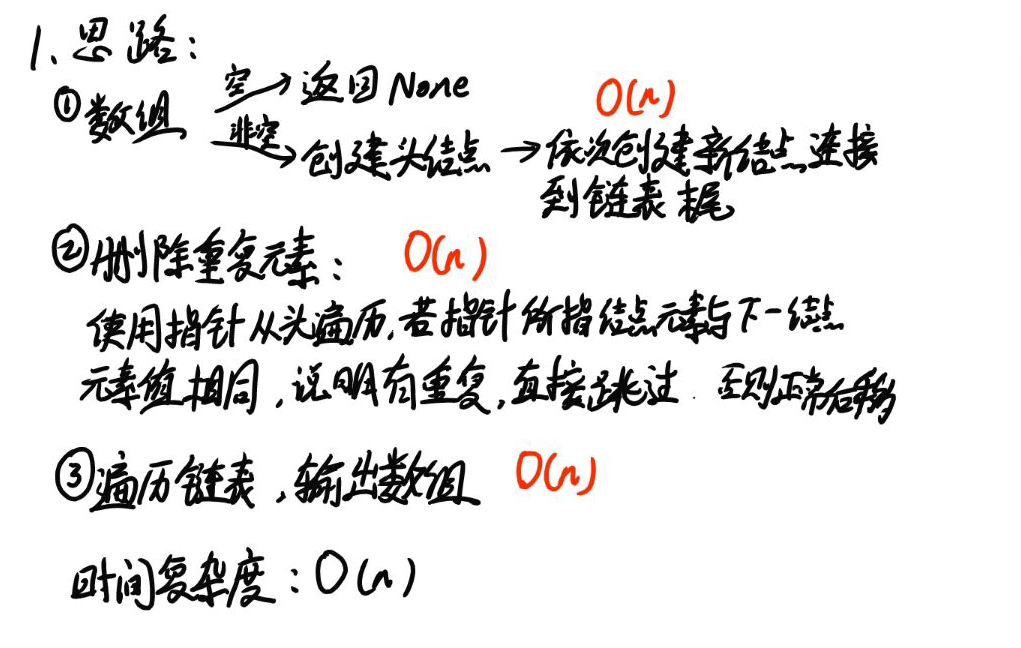 1、思路：
①数组 空→返回None O(n)
非空→创建头结点→依次创建新结点连接
到链表尾
②删除重复元素： O(n)
使用指针从头遍历,若指针所指结点元素与下一结点
元素值相同,说明有重复,直接跳过.否则正常后移
③遍历链表,输出数组 O(n)
时间复杂度：O(n)